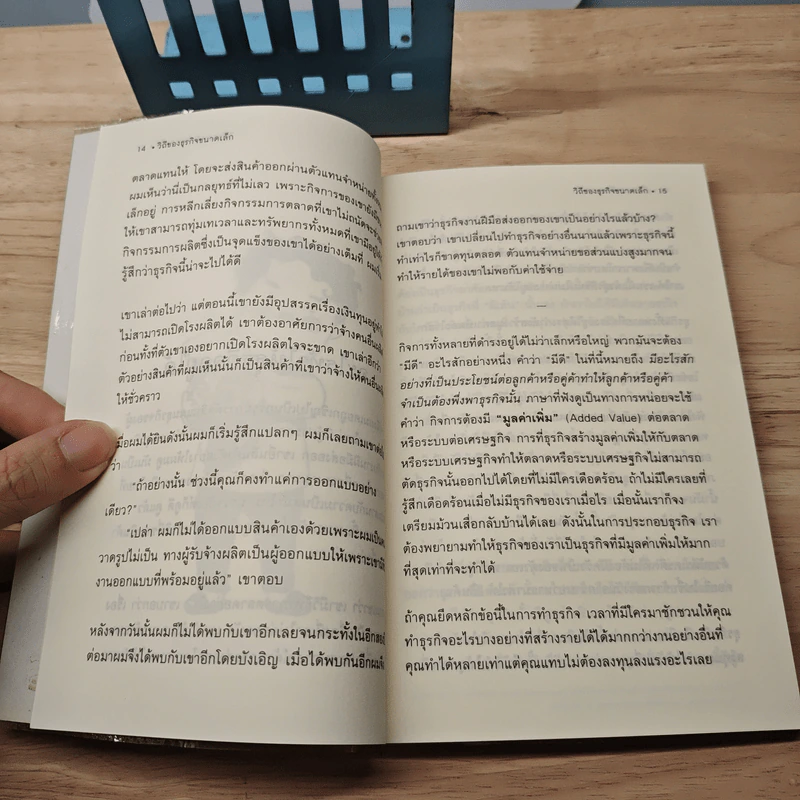 14 • วิถีของธุรกิจขนาดเล็ก
ตลาดแทนให้ โดยจะส่งสินค้าออกผ่านตัวแทนจำหน่าย
ผมเห็นว่านี่เป็นกลยุทธ์ที่ไม่เลว เพราะกิจการของเขายังมี
เล็กอยู่ การหลีกเลี่ยงกิจกรรมการตลาดที่เขาไม่ถนัดจะ
ให้เขาสามารถทุ่มเทเวลาและทรัพยากรทั้งหมดที่เขามีอยู่
กิจกรรมการผลิตซึ่งเป็นจุดแข็งของเขาได้อย่างเต็มที่
รู้สึกว่าธุรกิจนี้น่าจะไปได้ดี
เขาเล่าต่อไปว่า แต่ตอนนี้เขายังมีอุปสรรคเรื่องเงินทุนอยู่
ไม่สามารถเปิดโรงผลิตได้ เขาต้องอาศัยการว่าจ้างคนอื่น
ก่อนทั้งที่ตัวเขาเองอยากเปิดโรงผลิตใจจะขาด เขาเล่าอีกว่า
ตัวอย่างสินค้าที่ผมเห็นนั้นก็เป็นสินค้าที่เขาว่าจ้างให้คนอื่น
ให้ชั่วคราว
เมื่อผมได้ยินดังนั้นผมก็เริ่มรู้สึกแปลกๆ ผมก็เลยถามเขา
ว่า
“ถ้าอย่างนั้น ช่วงนี้คุณก็คงทำแค่การออกแบบอย่าง
เดียว?”
“เปล่า ผมก็ไม่ได้ออกแบบสินค้าเองด้วยเพราะผมเป็น
วาดรูปไม่เป็น ทางผู้รับจ้างผลิตเป็นผู้ออกแบบให้เพราะเขามี
งานออกแบบที่พร้อมอยู่แล้ว” เขาตอบ
หลังจากวันนั้นผมก็ไม่ได้พบกับเขาอีกเลยจนกระทั่งในอีก
ต่อมาผมจึงได้พบกับเขาอีกโดยบังเอิญ เมื่อได้พบกันอีกผมจึง
วิถีของธุรกิจขนาดเล็ก • 15
ถามเขาว่าธุรกิจงานฝีมือส่งออกของเขาเป็นอย่างไรแล้วบ้าง?
เขาตอบว่า เขาเปลี่ยนไปทำธุรกิจอย่างอื่นนานแล้วเพราะธุรกิจนี้
ทำเท่าไรก็ขาดทุนตลอด ตัวแทนจำหน่ายขอส่วนแบ่งสูงมากจน
ทำให้รายได้ของเขาไม่พอกับค่าใช้จ่าย
กิจการทั้งหลายที่ดำรงอยู่ได้ไม่ว่าเล็กหรือใหญ่ พวกมันจะต้อง
“มีดี” อะไรสักอย่างหนึ่ง คำว่า “มีดี” ในที่นี้หมายถึง มีอะไรสัก
อย่างที่เป็นประโยชน์ต่อลูกค้าหรือคู่ค้าทำให้ลูกค้าหรือคู่ค้า
จำเป็นต้องพึ่งพาธุรกิจนั้น ภาษาที่ฟังดูเป็นทางการหน่อยจะใช้
คำว่า กิจการต้องมี “มูลค่าเพิ่ม” (Added Value) ต่อตลาด
หรือระบบต่อเศรษฐกิจ การที่ธุรกิจสร้างมูลค่าเพิ่มให้กับตลาด
หรือระบบเศรษฐกิจทำให้ตลาดหรือระบบเศรษฐกิจไม่สามารถ
ตัดธุรกิจนั้นออกไปได้โดยที่ไม่มีใครเดือดร้อน ถ้าไม่มีใครเลยที่
รู้สึกเดือดร้อนเมื่อไม่มีธุรกิจของเราเมื่อไร เมื่อนั้นเราก็จง
เตรียมม้วนเสื่อกลับบ้านได้เลย ดังนั้นในการประกอบธุรกิจ เรา
ต้องพยายามทำให้ธุรกิจของเราเป็นธุรกิจที่มีมูลค่าเพิ่มให้มาก
ที่สุดเท่าที่จะทำได้
ถ้าคุณยึดหลักข้อนี้ในการทำธุรกิจ เวลาที่มีใครมาชักชวนให้คุณ
ทำธุรกิจอะไรบางอย่างที่สร้างรายได้ได้มากกว่างานอย่างอื่นที่
คุณทำได้หลายเท่าแต่คุณแทบไม่ต้องลงทุนลงแรงอะไรเลย